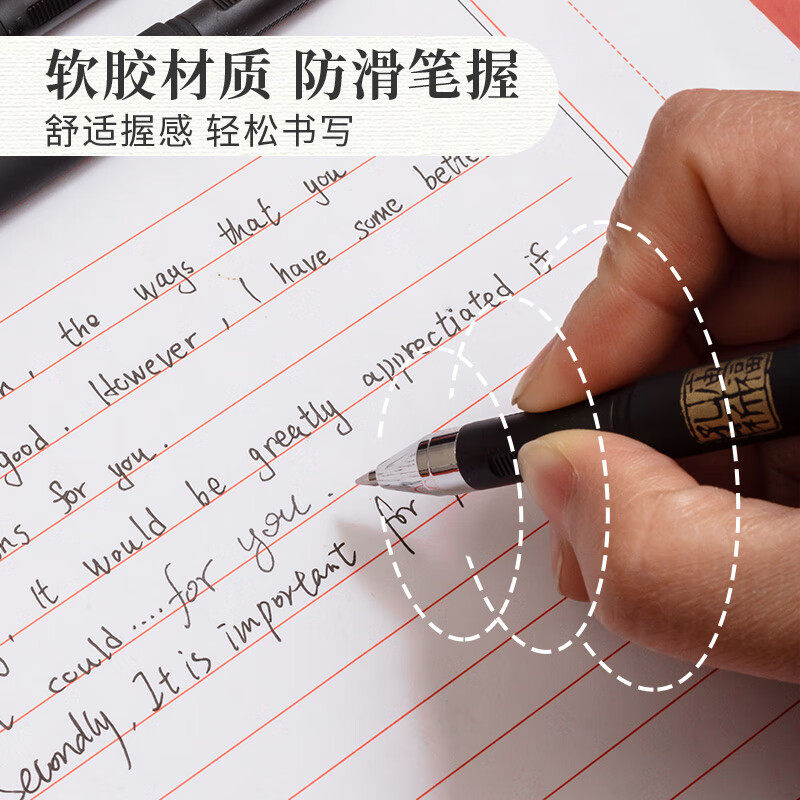 软胶材质 防滑笔握
舒适握感 轻松书写
the ways that you
good. However, I have some bette
ns for you.
, it would be greatly appreciated if
could....for you.
Secondly, It is important for
孔庙祈福